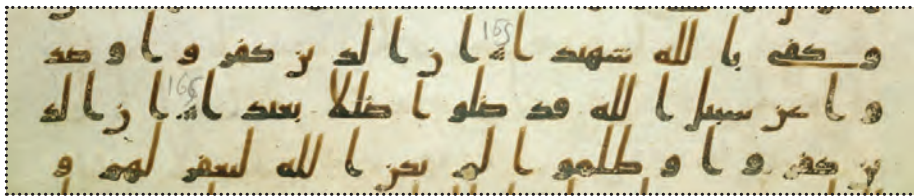 وكفى بالله شهيدا 165 ان الذين كفروا وصد
وا عن سبيل الله قد ضلوا ضللا بعيدا 166 ان الذ
ين كفروا وظلموا لم يكن الله ليغفر لهم و